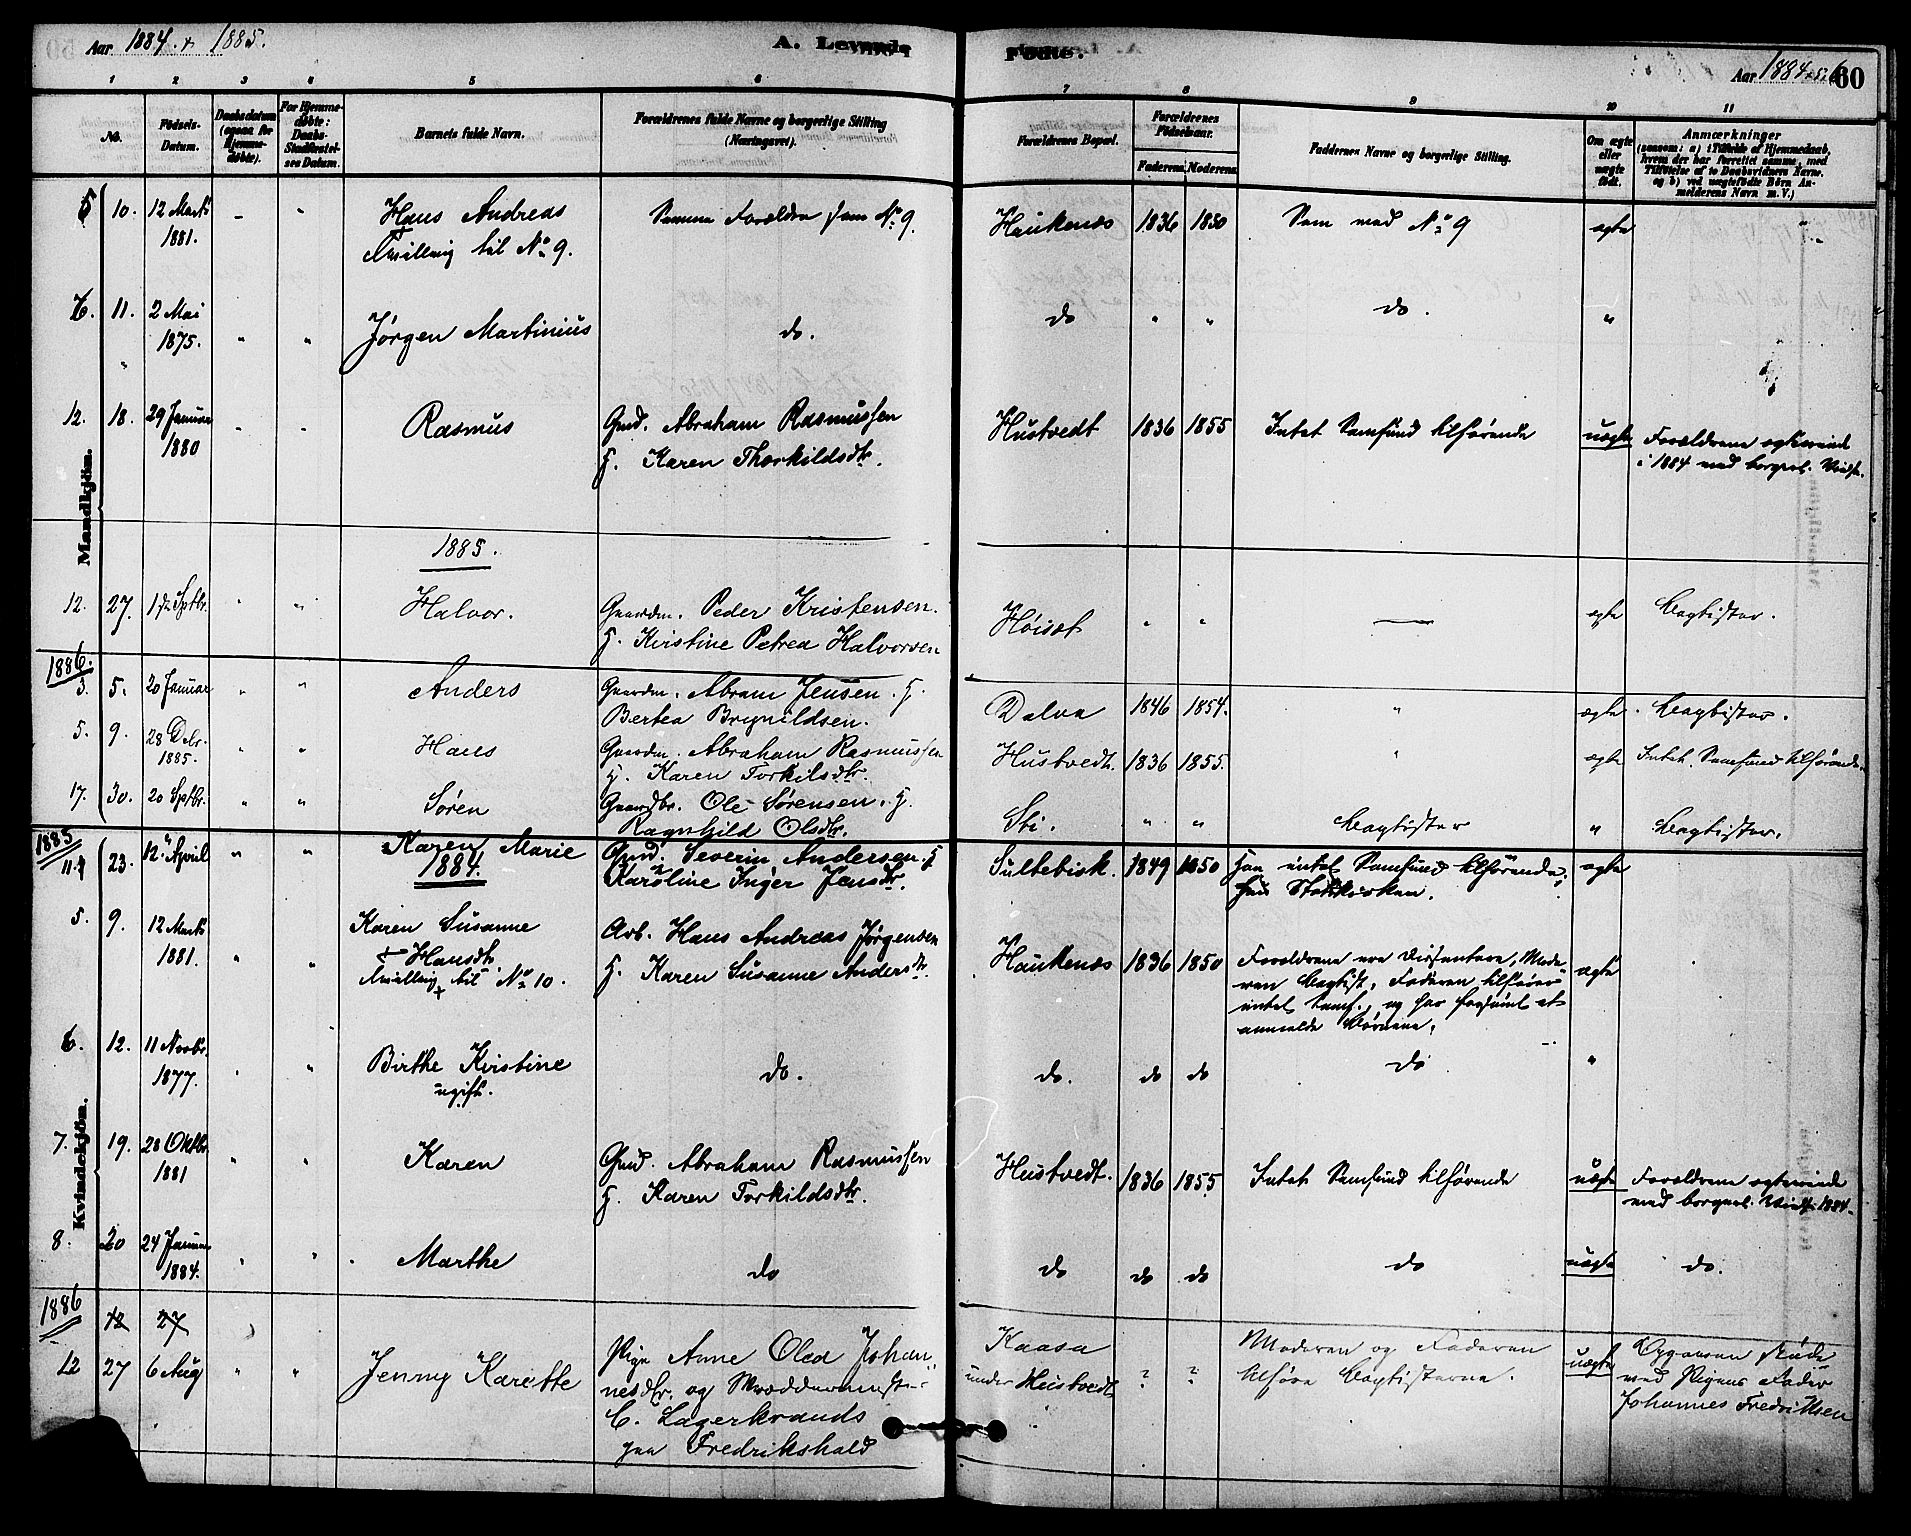 Aar 1884. & 1885.
A. Levende
Fødte.
Aar 1884
60
1 2 3 4 5 6 7 8 9 10 11
No.
Fødsels-Datum.
Daabsdatum (ogsaa for Hjemmedøbte).
For Hjemmedøbte: Daabs-Stadfæstelses Datum.
Barnets fulde Navn.
Forældrenes fulde Navne og borgerlige Stilling (Næringsvei).
Forældrenes Bopæl.
Forældrenes Fødselsaar.
Faderens. Moderens.
Faddernes Navne og borgerlige Stilling.
Om ægte eller uægte født.
Anmærkninger (saasom: a) i Tilfælde af Hjemmedaab, hvem der har forrettet samme, med Tilføielse af to Daabsvidners Navne, og b) ved uægtefødte Børn Anmelderens Navn m. V.)
Mandkjön.
5 10. 12 Marts 1881. Hans Andreas Tvilling til No 9. Samme Forældre som No 9. Haukenæs 1836 1850 Som med No 9 ægte
6. 11. 2 Mai 1875. Jørgen Martinius do. do " " do. "
12. 18. 29 Januar 1880 Rasmus Gmd. Abraham Rasmussen H. Karen Thorkildsdtr. Hustvedt 1836 1855 Intet Samfund tilhørende uægte Forældrene ægteviede i 1884 med borgerl. Vielse.
1885.
12. 27. 1ste Sptbr. Halvor. Gaardm. Peder Kristensen. H. Kristine Petrea Halvorsen Høiset " " — ægte Baptister.
1886.
3. 5. 20 Januar Anders Gaardm. Abram Jensen. H. Bertea Brynildsen. Dalva 1846 1854. " ægte. Baptister.
5. 9. 28 Debr. 1885. Hans Gaardm. Abraham Rasmussen H. Karen Torkilsdtr. Hustvedt. 1836 1855. " ægte Intet Samfund tilhørende
17. 30. 20 Sptbr. Søren Gaardbr. Ole Sørensen. H. Ragnhild Olsdtr. Sti. " " Baptister " Baptister.
Kvindekjön.
1885
11. 23. 12. April Karen Marie Gmd. Severin Andersen. H Karoline Inger Jensdtr. Sultebisk. 1849 1850 Han intet Samfund tilhørende; hun Statskirken. ægte
1884.
5. 9. 12 Marts 1881. Karen Susanne Hansdtr Tvilling til No 10. Arb. Hans Andreas Jørgensen H. Karen Susanne Andersdtr. Haukenæs 1836 1850 Forældrene ere Dissentere, Moderen Baptist, Faderen tilhører intet Samf., og har forsømt at anmelde Børnene. ægte
6. 12. 11 Novbr. 1877. Birthe Kristine ugift. do. do. do do do "
7. 19. 28 Oktbr. 1881 Karen Gmd. Abraham Rasmussen H. Karen Torkildsdtr. Hustvedt. 1836 1855 Intet Samfund tilhørende uægte Forældrene ægteviede med borgerl. Vielse 1884.
8. 20 24 Januar 1884. Marthe do do do do do uægte do.
1886
12 27
12 27 6 Aug Jenny Karette Pige Anne Olea Johannesdtr. og Skræddermester C. Lagerkrands paa Fredrikshald Kaasa under Hustvedt ? ? Moderen og Faderen tilhøre Baptisterne. uægte Opgaven skede ved Pigens Fader Johannes Fredriksen